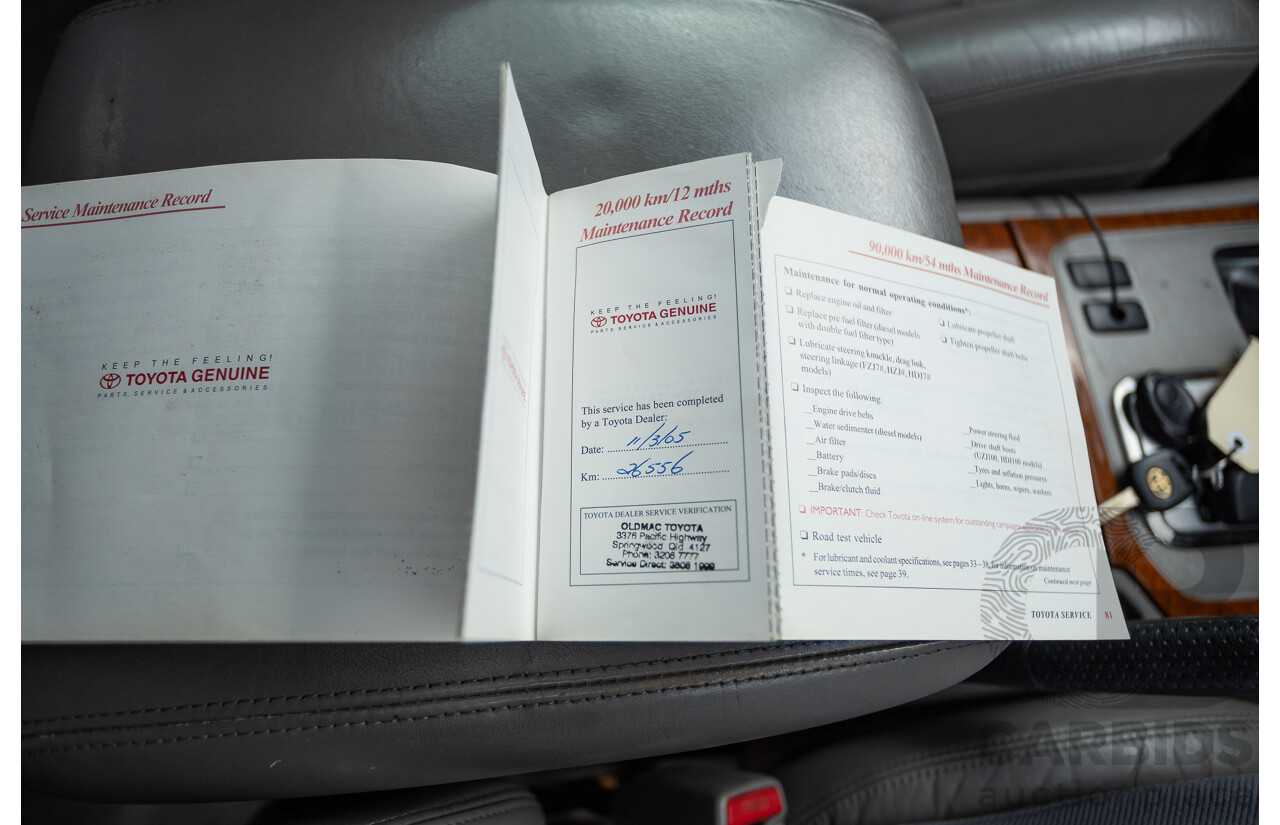 Service Maintenance Record
KEEP THE FEELING!
TOYOTA GENUINE
PARTS, SERVICE & ACCESSORIES
20,000 km/12 mths
Maintenance Record
KEEP THE FEELING!
TOYOTA GENUINE
PARTS, SERVICE & ACCESSORIES
This service has been completed
by a Toyota Dealer:
Date: 11/3/05
Km: 26556
TOYOTA DEALER SERVICE VERIFICATION
OLDMAC TOYOTA
3376 Pacific Highway
Springwood Qld 4127
Phone: 3208 7777
Service Direct: 3808 1999
90,000 km/54 mths Maintenance Record
Maintenance for normal operating conditions*:
❏ Replace engine oil and filter
❏ Replace pre fuel filter (diesel models
with double fuel filter type)
❏ Lubricate steering knuckle, drag link,
steering linkage (FZJ7#, HZJ#, HDJ7#
models)
❏ Lubricate propeller shaft
❏ Tighten propeller shaft bolts
❏ Inspect the following:
__Engine drive belts
__Water sedimenter (diesel models)
__Air filter
__Battery
__Brake pads/discs
__Brake/clutch fluid
__Power steering fluid
__Drive shaft boots
(UZJ100, HDJ100 models)
__Tyres and inflation pressures
__Lights, horns, wipers, washers
❏ IMPORTANT: Check Toyota on-line system for outstanding campaigns
❏ Road test vehicle
* For lubricant and coolant specifications, see pages 33–38, for information on maintenance
service times, see page 39.
Continued next page
TOYOTA SERVICE 81
CARBIDS